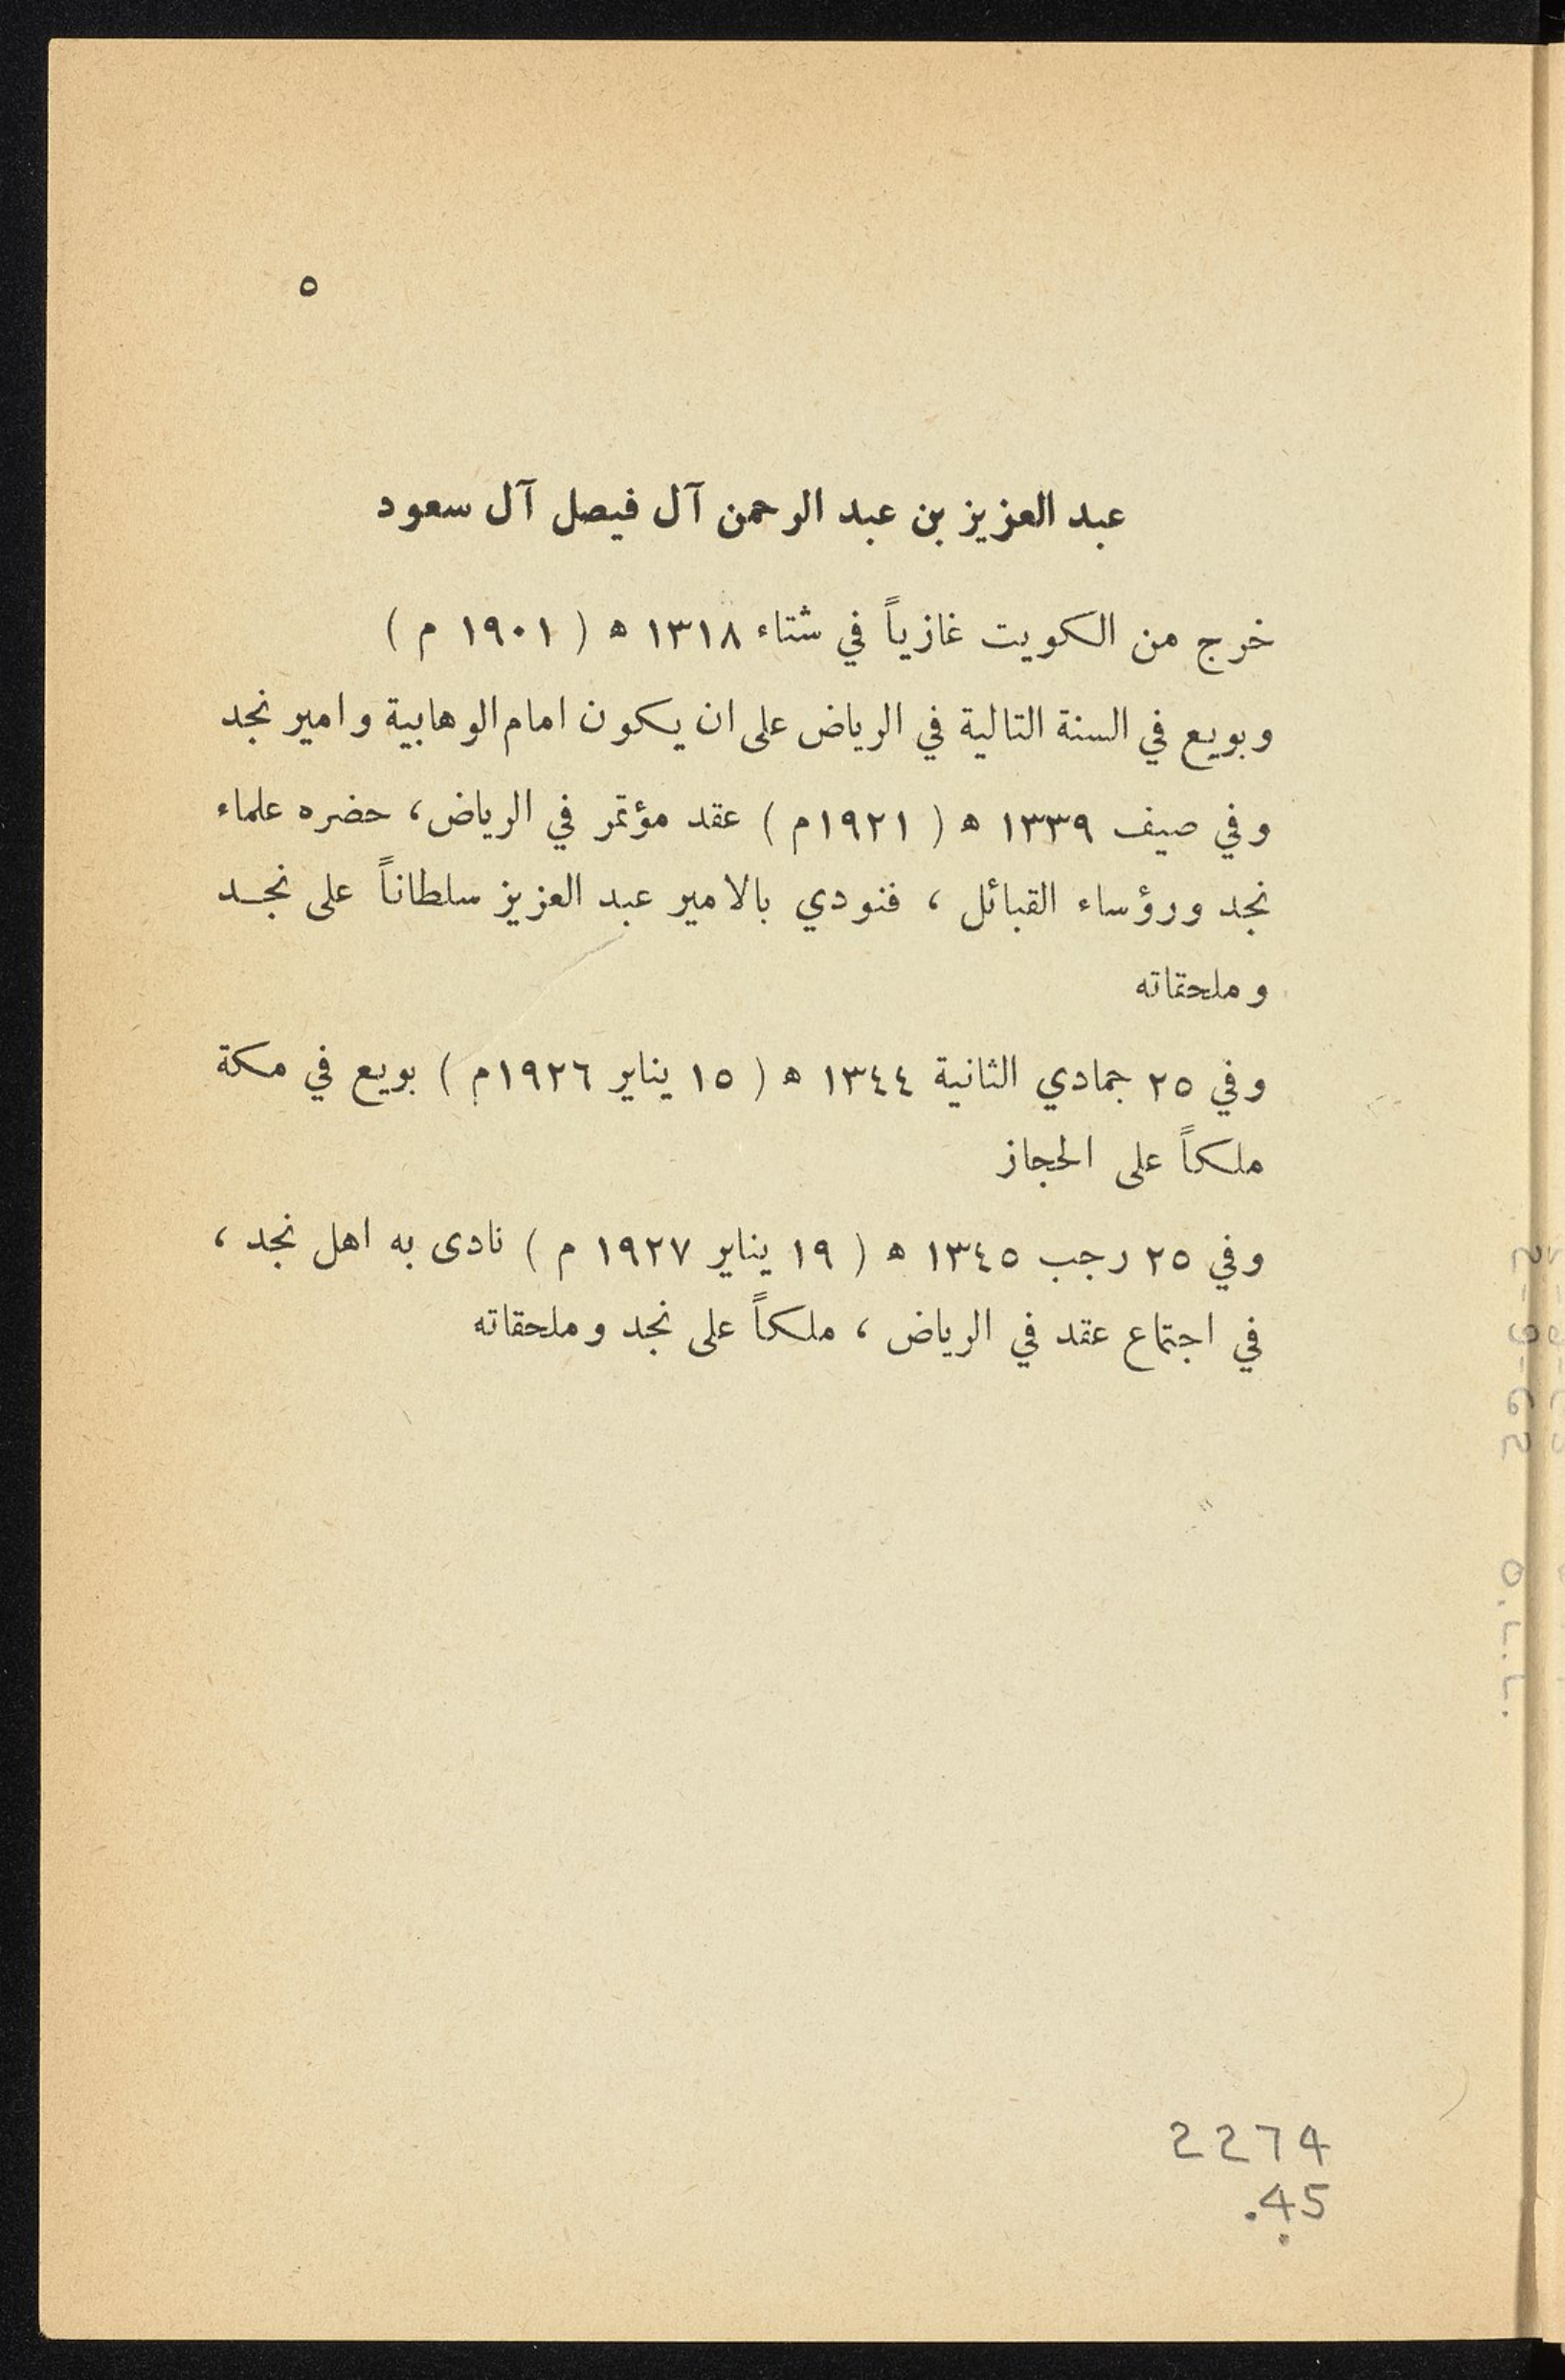 ٥
عبد العزيز بن عبد الرحمن آل فيصل آل سعود
خرج من الكويت غازياً في شتاء ١٣١٨ ه ( ١٩٠١ م )
وبويع في السنة التالية في الرياض على ان يكون امام الوهابية وامير نجد
وفي صيف ١٣٣٩ ه ( ١٩٢١م ) عقد مؤتمر في الرياض، حضره علماء
نجد ورؤساء القبائل ، فنودي بالامير عبد العزيز سلطاناً على نجـد
وملحقاته
وفي ٢٥ جمادي الثانية ١٣٤٤ ه ( ١٥ يناير ١٩٢٦م ) بويع في مكة
ملكاً على الحجاز
وفي ٢٥ رجب ١٣٤٥ ه ( ١٩ يناير ١٩٢٧ م ) نادى به اهل نجد ،
في اجتماع عقد في الرياض ، ملكاً على نجد وملحقاته
2274
.45